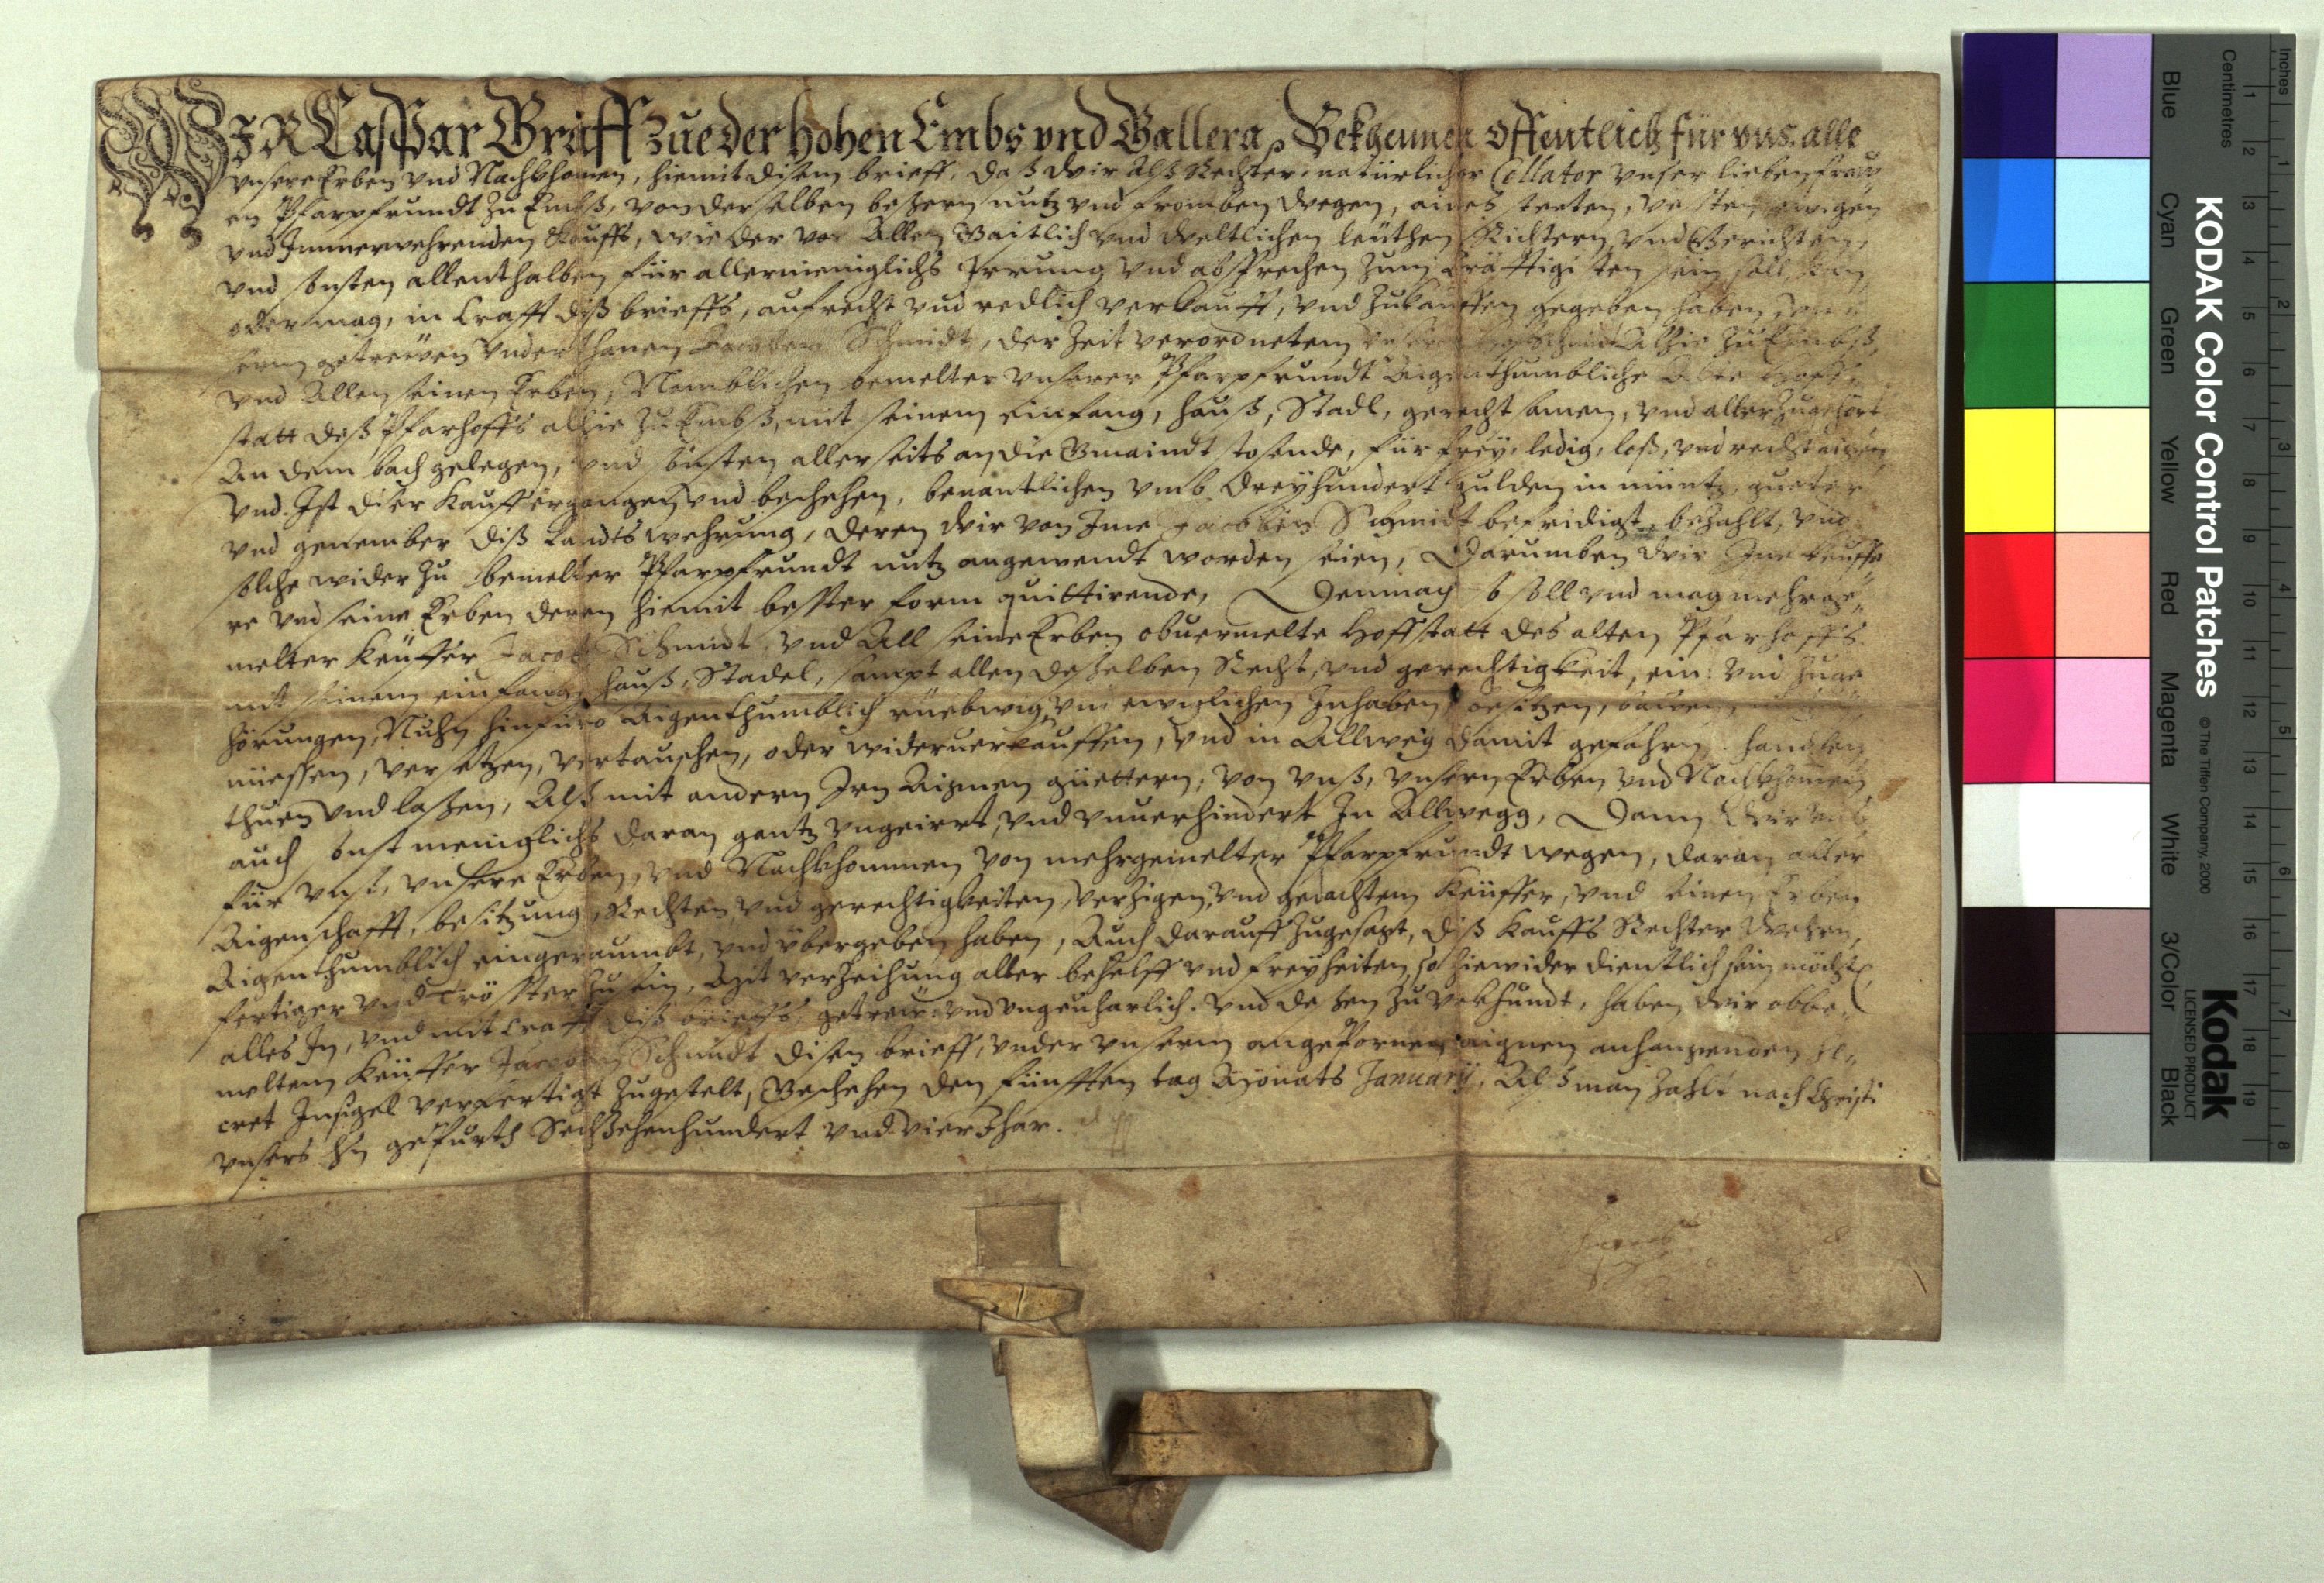 WIR Casspar Graff zue der Hohen Embs vnd Gallera, Bekhennen Offentlich für vns, alle
vnsere Erben vnd Nachkhomen, hiemit disem brieff, daß wir alß Rechter, natürlicher Collator vnser lieben frauw
en Pfarpfrundt zu Embß, von derselben bessern nutz vnd fromben wegen, aines steten, vesten, ewigen
vnd Immerwehrenden Kauffs, wie der vor Allen Gaistlich vnd weltlichen leüthen Richtern, vnd Gerichten,
vnd sonsten allenthalben für allermeniglichs Irrung vnd absprechen zum kräfftigisten sein soll, kan,
oder mag, in krafft diß brieffs, aufrecht vnd redlich verkaufft, vnd zukauffen gegeben haben,
getreüwen vnderthanen Jacoben Schmidt, der Zeit verordnetem Schmidt Alhie zu Embß,
vnd Allen seinen Erben, Namblichen bemelter vnserer Pfarpfrundt Aigenthumbliche Alte Hoff
statt deß Pfarhoffs alhie zu Embß, mit seinem einfang, hauß, Stadl, gerechtsamen, vnd aller Zugehört
An dem bach gelegen, vnd sonsten allerseits an die Gmaindt stosende, für frey, ledig, loß, vnd recht aigen,
vnd Ist diser Kauff ergangen vnd beschehen, benantlichen vmb Dreyhundert gulden in müntz, gueter
vnd genember diß Landts wehrung, deren wir von Ime Jacoben Schmidt befridigt, bezahlt, vnd
solche wider zu bemelter Pfarpfrundt nutz angewendt worden seien, Darumben wir Ine keüffe
re vnd seine Erben deren hiemit bester form quittirende, Demnach so soll vnd mag mehrge
melter Keüffer Jacob Schmidt, vnd All seine Erben obuermelte Hoffstatt des alten Pfarhoffs
mit seinem einfang, hauß, Stadel, sampt allen desselben Recht, vnd gerechtigkeit, ein: vnd zuge
hörungen, Nuhn hinfüro Aigenthumblich rüebwig, vnd ewiclichen Inhaben, besitzen, bauwen,
niiessen, versetzen, vertauschen, oder widerverkauffen, vnd in Allweg damit gefahren, handlen,
thuen vnd lassen, Alß mit andern Irn Aignen güettern, von vnß, vnsern Erben vnd Nachkhomen,
auch sonst meniglichs daran gantz vngeirrt, vnd vnuerhindert In Allwegg, Dann wir vnß
für vnß, vnsere Erben, vnd Nachkhommen von mehrgemelter Pfarpfrundt wegen, daran aller
Aigenschafft, besitzung, Rechten vnd gerechtigkeiten, verzigen, vnd gedachtem Keüffer, vnd seinen Erben
Aigenthumblich eingeraumbt, vnd übergeben haben, Auch darauff zugesagt, diß Kauffs Rechter Wehren,
fertiger vnd tröster zu sein, Mit verzeihung aller behelff vnd freyheiten, so hiewider dienstlich sein möchte,
alles In, vnd mit krafft diß brieffs, getreüw vnd vngeuharlich. Vnd dessen zu vrkhundt, haben wir obbe
meltem Keüffer Jacoben Schmidt disen brieff, vnder vnserm angebornen aignen anhangenden Se
cret Insigel verfertigt zugestelt, Beschehen den fünfften tag Monats January, Alß man zahlt nach Christi
vnsers Hn geburth Sechzehenhundert vnd vier Jhar.